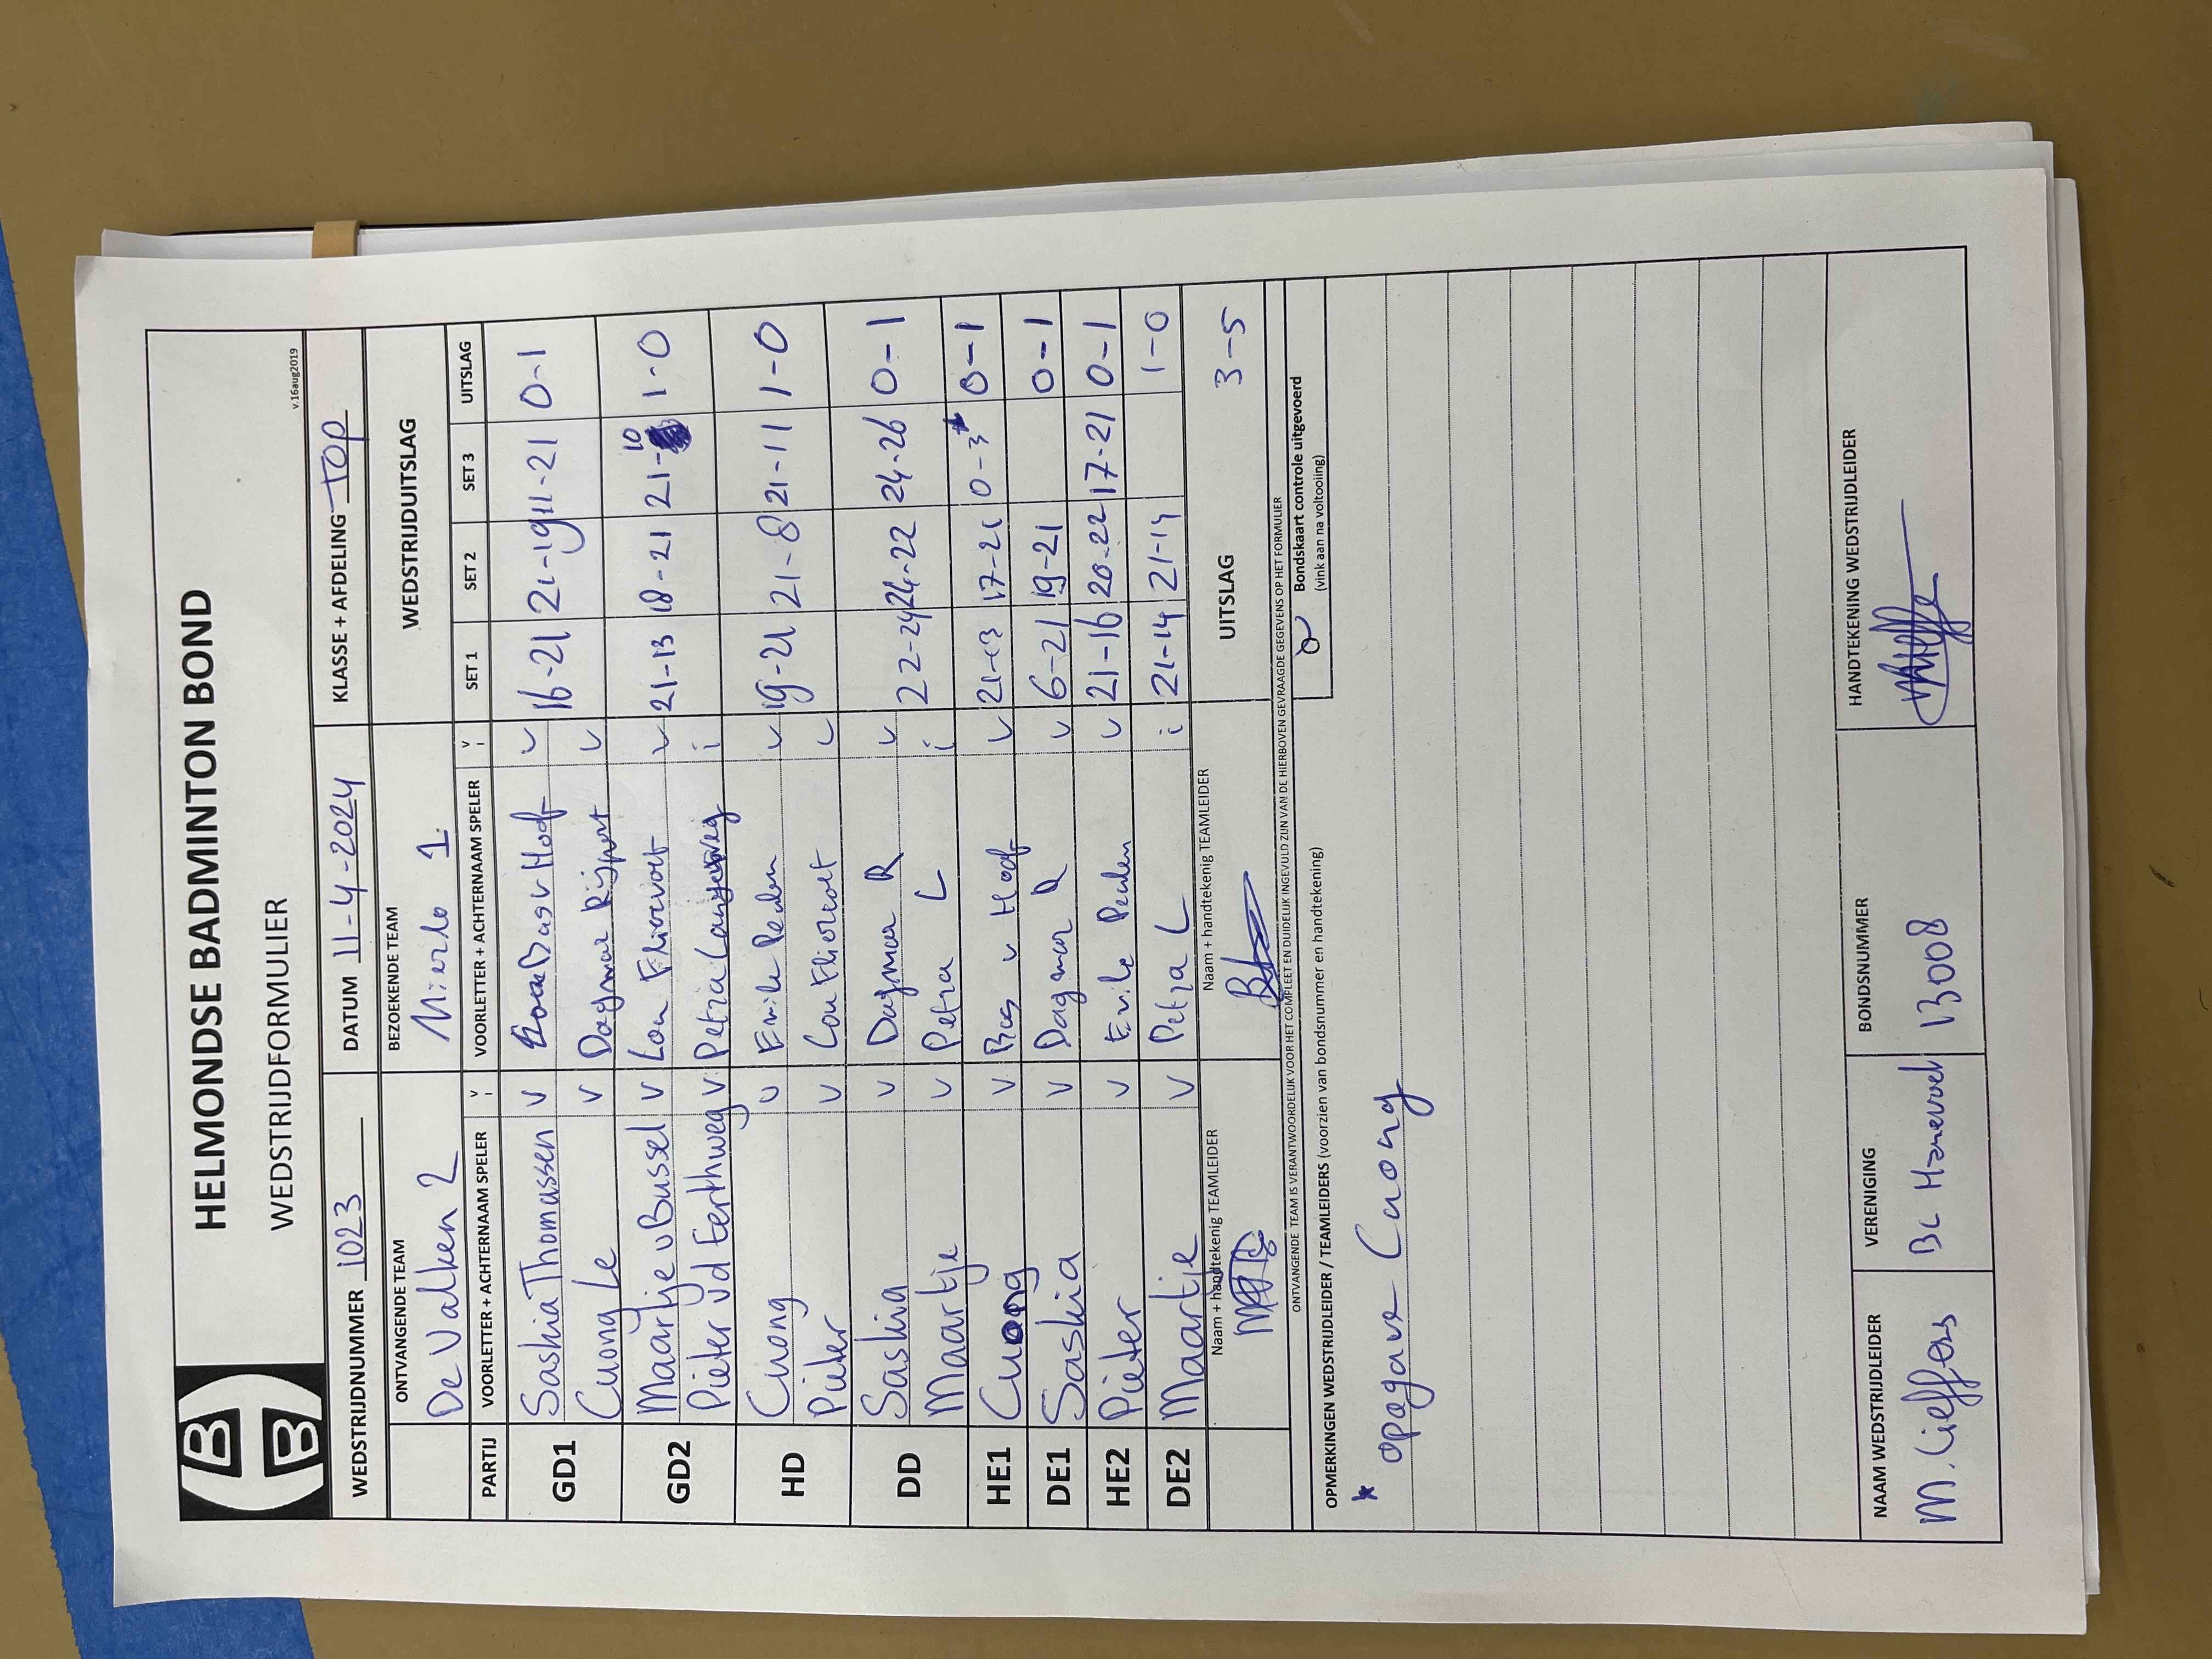 HELMONDSE BADMINTON BOND
WEDSTRIJDFORMULIER
v.16aug2019
WEDSTRIJDNUMMER 1023 DATUM 11-4-2024 KLASSE + AFDELING TOP
ONTVANGENDE TEAM BEZOEKENDE TEAM WEDSTRIJDUITSLAG
De Valken 2 Mierlo 1
PARTIJ VOORLETTER + ACHTERNAAM SPELER V I VOORLETTER + ACHTERNAAM SPELER V I SET 1 SET 2 SET 3 UITSLAG
GD1 Saskia Thomassen V Bas v Hoof V 16-21 21-19 11-21 0-1
Cuong Le V Dagmar Rijpert V
GD2 Maartje v Bussel V Lou Fliervoet V 21-13 18-21 21-10 1-0
Pieter vd Eerthweg V Petra i
HD Cuong V Emile Peelen V 19-21 21-8 21-11 1-0
Pieter V Lou Fliervoet V
DD Saskia V Dagmar R V 22-24 24-22 24-26 0-1
Maartje V Petra L i
HE1 Cuong V Bas v Hoof V 21-13 17-21 0-3* 0-1
DE1 Saskia V Dagmar R V 6-21 19-21 0-1
HE2 Pieter V Emile Peelen V 21-16 20-22 17-21 0-1
DE2 Maartje V Petra L i 21-14 21-14 1-0
Naam + handtekenig TEAMLEIDER Naam + handtekenig TEAMLEIDER UITSLAG 3-5
ONTVANGENDE TEAM IS VERANTWOORDELIJK VOOR HET COMPLEET EN DUIDELIJK INGEVULD ZIJN VAN DE HIERBOVEN GEVRAAGDE GEGEVENS OP HET FORMULIER
OPMERKINGEN WEDSTRIJDLEIDER / TEAMLEIDERS (voorzien van bondsnummer en handtekening)
Bondskaart controle uitgevoerd
(vink aan na voltooiing)
* opgave Cuong
NAAM WEDSTRIJDLEIDER VERENIGING BONDSNUMMER HANDTEKENING WEDSTRIJDLEIDER
M. Lieffers BC 13008